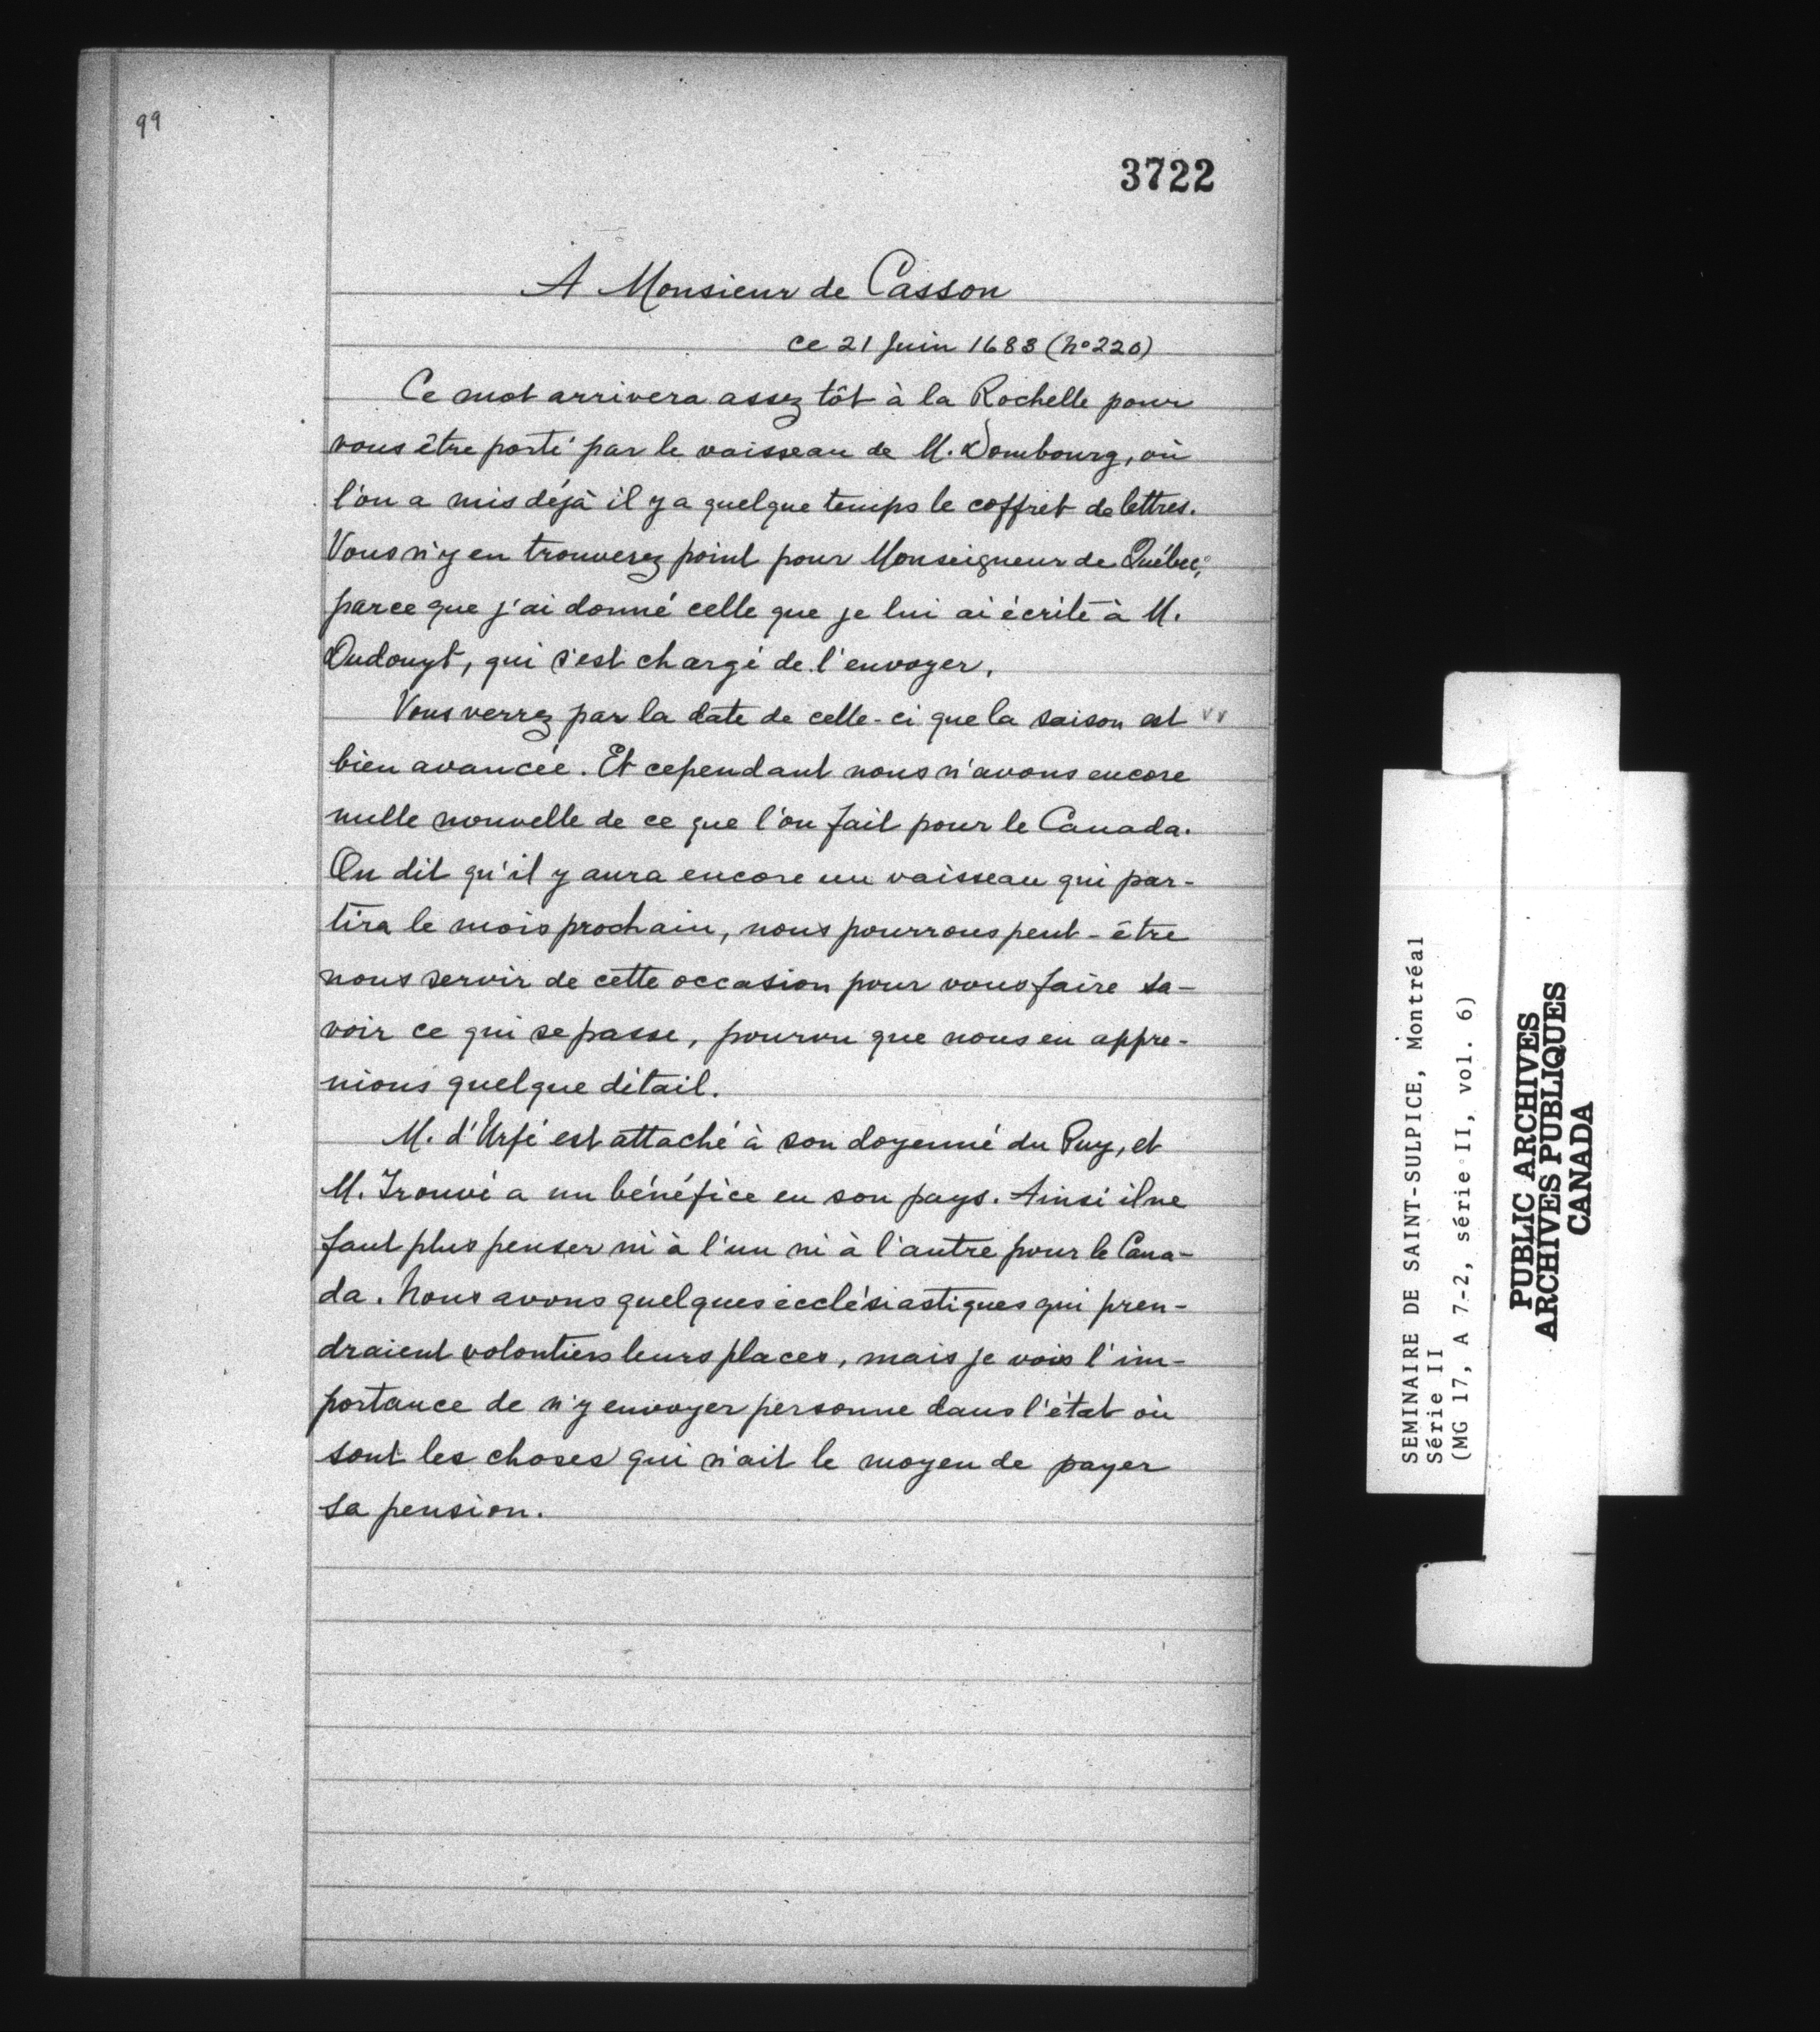 99
3722
A Monsieur de Casson
ce 21 Juin 1683 (No 220)
Ce mot arrivera assez tôt à la Rochelle pour
vous être porté par le vaisseau de M. Dombourg, où
l'on a mis déjà il y a quelque temps le coffret de lettres.
Vous n'y en trouverez point pour Monseigneur de Québec,
parce que j'ai donné celle que je lui ai écrite à M.
Dudouyt, qui s'est chargé de l'envoyer.
Vous verrez par la date de celle-ci que la saison est vv
bien avancée. Et cependant nous n'avons encore
nulle nouvelle de ce que l'on fait pour le Canada.
On dit qu'il y aura encore un vaisseau qui par-
tira le mois prochain, nous pourrons peut-être
nous servir de cette occasion pour vous faire sa-
voir ce qui se passe, pourvu que nous en appre-
nions quelque détail.
M. d'Urfé est attaché à son doyenné du Puy, et
M. Trouvé a un bénéfice en son pays. Ainsi il ne
faut plus penser ni à l'un ni à l'autre pour le Cana-
da. Nous avons quelques ecclésiastiques qui pren-
draient volontiers leurs places, mais je vois l'im-
portance de n'y envoyer personne dans l'état où
sont les choses qui n'ait le moyen de payer
sa pension.
SEMINAIRE DE SAINT-SULPICE, Montréal
Série II
(MG 17, A 7-2, série II, vol. 6)
PUBLIC ARCHIVES
ARCHIVES PUBLIQUES
CANADA